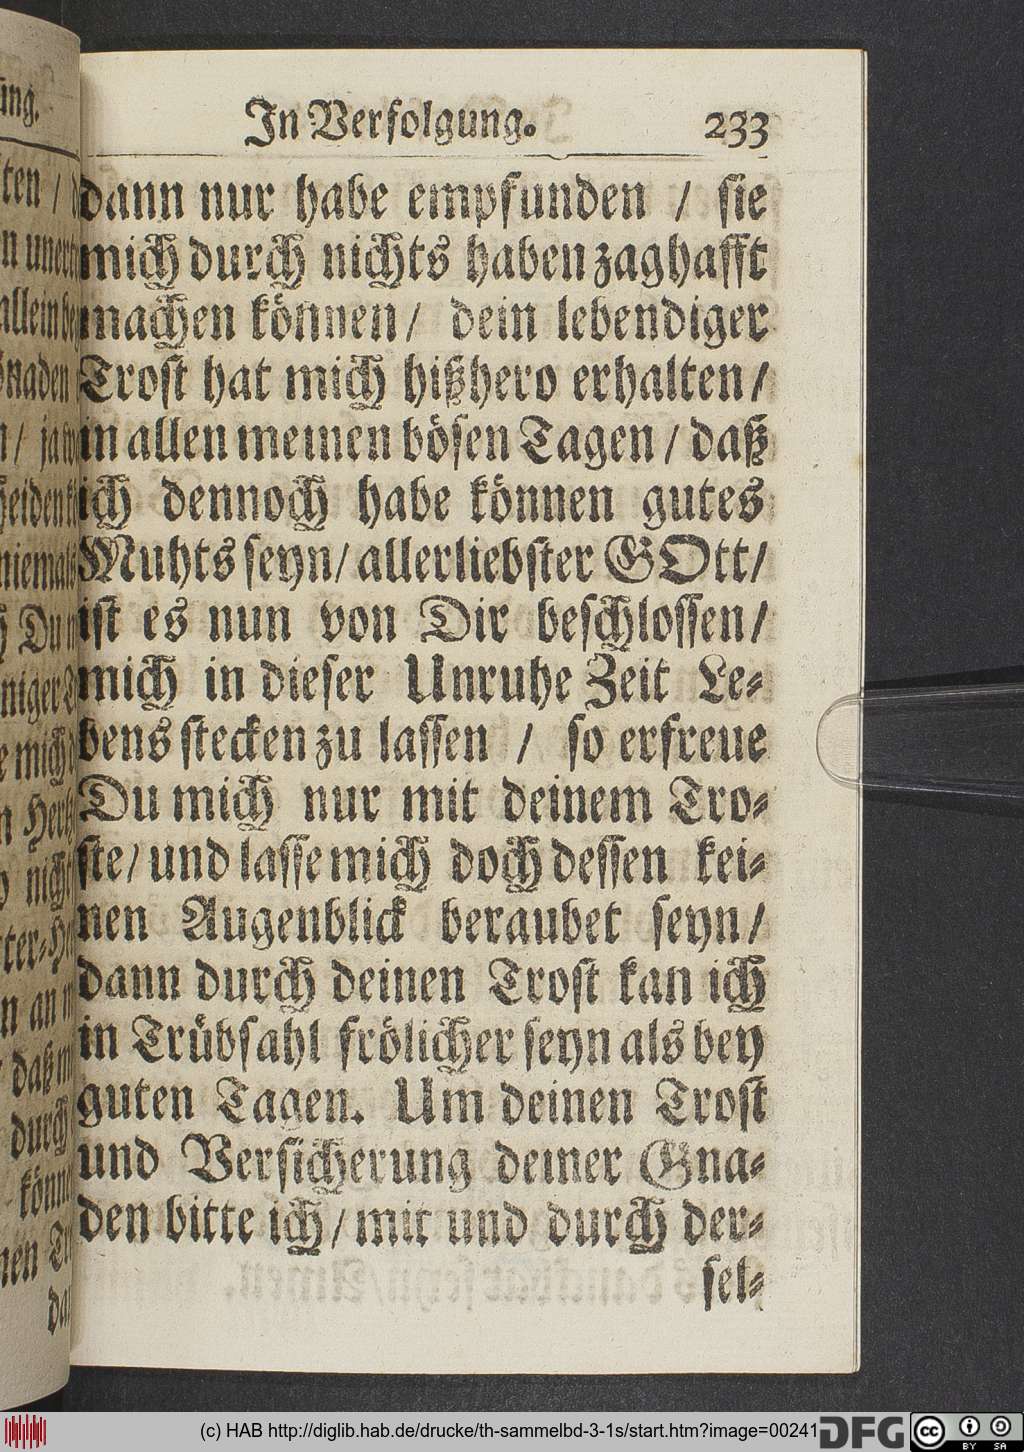 In Verfolgung. 233
dann nur habe empfunden / sie
mich durch nichts haben zaghafft
machen können / dein lebendiger
Trost hat mich hißhero erhalten /
in allen meinen bösen Tagen / daß
ich dennoch habe können gutes
Muhts seyn / allerliebster GOtt /
ist es nun von Dir beschlossen /
mich in dieser Unruhe Zeit Le-
bens stecken zu lassen / so erfreue
Du mich nur mit deinem Tro-
ste / und lasse mich doch dessen kei-
nen Augenblick beraubet seyn /
dann durch deinen Trost kan ich
in Trübsahl frölicher seyn als bey
guten Tagen. Um deinen Trost
und Versicherung deiner Gna-
den bitte ich / mit und durch der-
sel-
(c) HAB http://diglib.hab.de/drucke/th-sammelbd-3-1s/start.htm?image=00241
DFG
cc BY SA